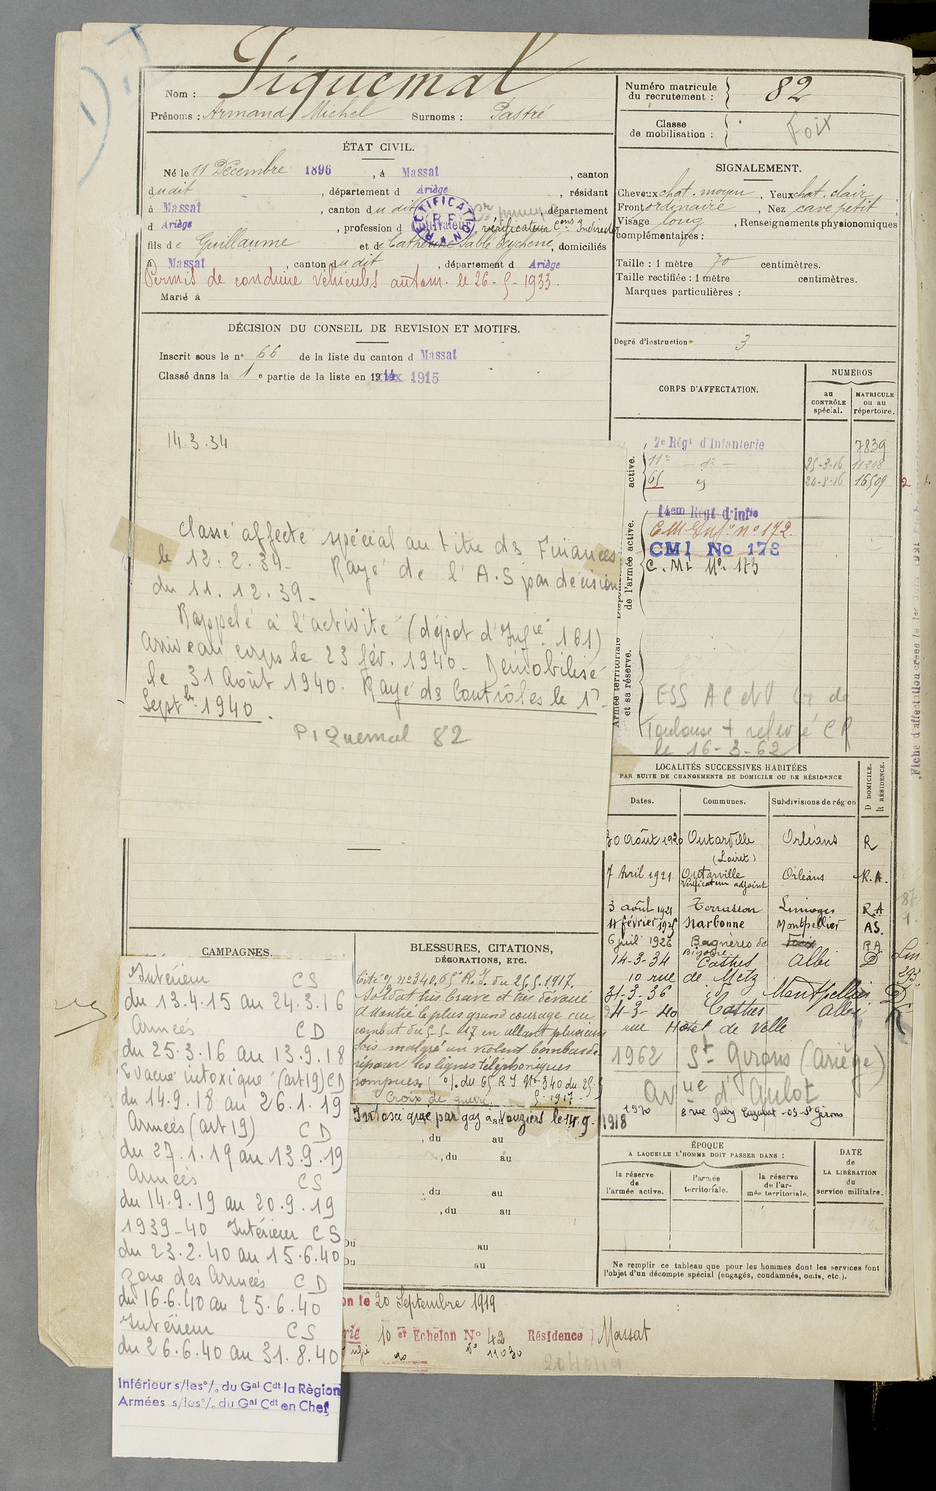 Nom : Piquemal
Prénoms : Armand Michel Surnoms : Pastré
Numéro matricule du recrutement : 82
Classe de mobilisation : Foix
ÉTAT CIVIL.
Né le 11 Décembre 1896, à Massat, canton
dudit, département d Ariège, résidant
à Massat, canton dudit, département
d Ariège, profession de Cultivateur, vérificateur
fils de Guillaume et de Catherine, domiciliés
à Massat, canton dudit, département d Ariège
Permis de conduire véhicules autom. le 26-5-1933.
Marié à
SIGNALEMENT.
Cheveux chat. moyen, Yeux chat. clair
Front ordinaire, Nez cavé petit
Visage long, Renseignements physionomiques
complémentaires :
Taille : 1 mètre 70 centimètres.
Taille rectifiée : 1 mètre centimètres.
Marques particulières :
Degré d'instruction : 3
DÉCISION DU CONSEIL DE REVISION ET MOTIFS.
Inscrit sous le n° 66 de la liste du canton d Massat
Classé dans la 1e partie de la liste en 1915
CORPS D'AFFECTATION.
NUMÉROS
au CONTRÔLE spécial.
MATRICULE ou au répertoire.
active.
7e Régt d'Infanterie 7839
11e — d° — 25-3-16 11208
65 24-8-16 16509
de l'armée active.
14em Régt d'Infie
C.M. Infie n° 172.
CMI No 178
C.M.I N° 173
Armée territoriale et sa réserve.
ESS AC et V
Toulouse + relevé CR
le 16-3-62
14.3.34
Classé affecté spécial au titre des Finances
le 12.2.34. Rayé de l'A.S par décision
du 11.12.39.
Rappelé à l'activité (dépôt d'Infie 161)
Arrivé au corps le 23 fév. 1940. Démobilisé
le 31 Août 1940. Rayé des Contrôles le 1er
Septbre 1940.
Piquemal 82
LOCALITÉS SUCCESSIVES HABITÉES
PAR SUITE DE CHANGEMENTS DE DOMICILE OU DE RÉSIDENCE.
Dates. Communes. Subdivisions de région D DOMICILE. R RÉSIDENCE.
30 août 1920 Outarville (Loiret) Orléans R
7 Avril 1921 Outarville vérificateur adjoint Orléans R.A.
3 août 1921 Terrasson Limoges R.A
11 février 1925 Narbonne Montpellier AS.
6 juil 1926 Bagnères de Bigorre RA
14-3-34 Castres Albi D
10 rue de Metz
31-3-36 Montpellier D
4-3-40 Castres Albi
rue Hôtel de Ville
1962 St Girons (Ariège)
Avue d'Aulot
1970 8 rue Gaby 09 St Girons
CAMPAGNES.
Intérieur CS
du 13.4.15 au 24.3.16
Armées CD
du 25.3.16 au 13.9.18
Evacué intoxiqué (art 19) CD
du 14.9.18 au 26.1.19
Armées (art 19) CD
du 27.1.19 au 13.9.19
Armées CS
du 14.9.19 au 20.9.19
1939-40 Intérieur CS
du 23.2.40 au 15.6.40
Zone des Armées CD
du 16.6.40 au 25.6.40
Intérieur CS
du 26.6.40 au 31.8.40
Intérieur s/les°/₀ du Gal Cdt la Région
Armées s/les°/₀ du Gal Cdt en Chef
BLESSURES, CITATIONS,
DÉCORATIONS, ETC.
Cité o/ n° 340. 65e R.I. du 25.5.1917.
Soldat très brave et très dévoué
a montré le plus grand courage au
combat du 5-5-17 en allant plusieurs
fois malgré un violent bombarde
réparer les lignes téléphoniques
rompues (o/. du 65 R I N° 340 du 25-5
Croix de guerre 5-1917
Intoxiqué par gaz à Vouziers le 14.9.1918
, du au
, du au
, du au
, du au
Du au
Du au
ÉPOQUE
A LAQUELLE L'HOMME DOIT PASSER DANS :
la réserve de l'armée active.
l'armée territoriale.
la réserve de l'armée territoriale.
DATE de LA LIBÉRATION du service militaire.
Ne remplir ce tableau que pour les hommes dont les services font
l'objet d'un décompte spécial (engagés, condamnés, omis, etc.).
on le 20 Septembre 1919
10 er Echelon No 42 Résidence : Massat
N° 11030